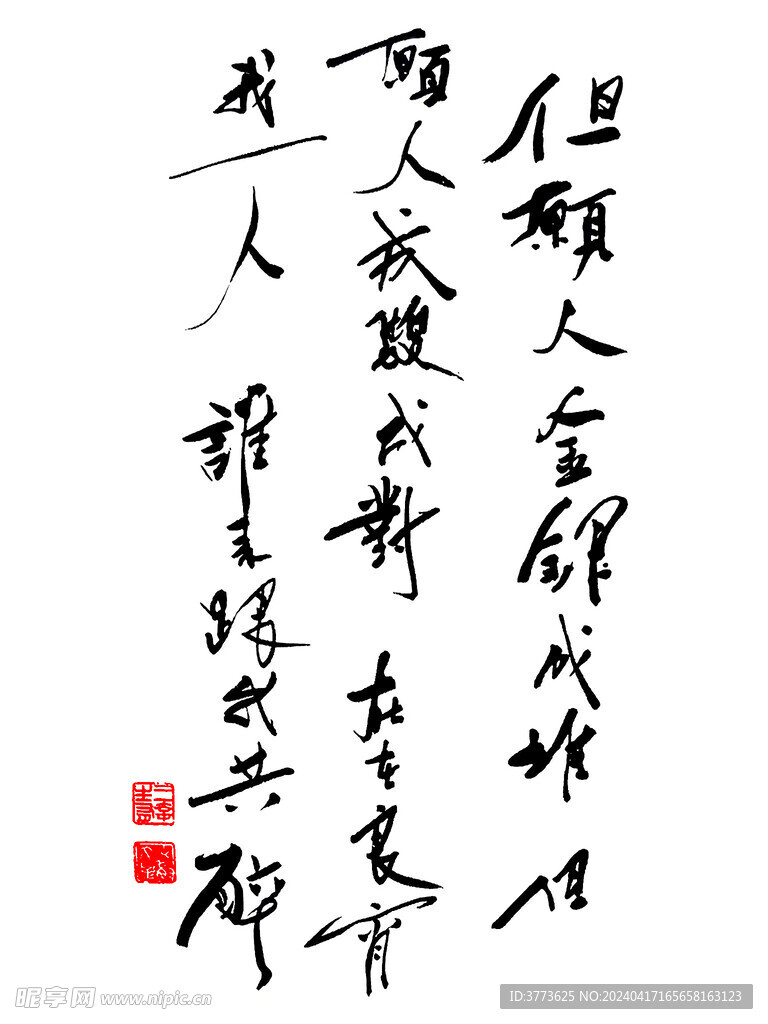 但願人金銀成堆 但
願人成雙成對 在在良宵
我一人 誰來跟我共醉
昵享网 www.nipic.cn
ID:3773625 NO:20240417165658163123